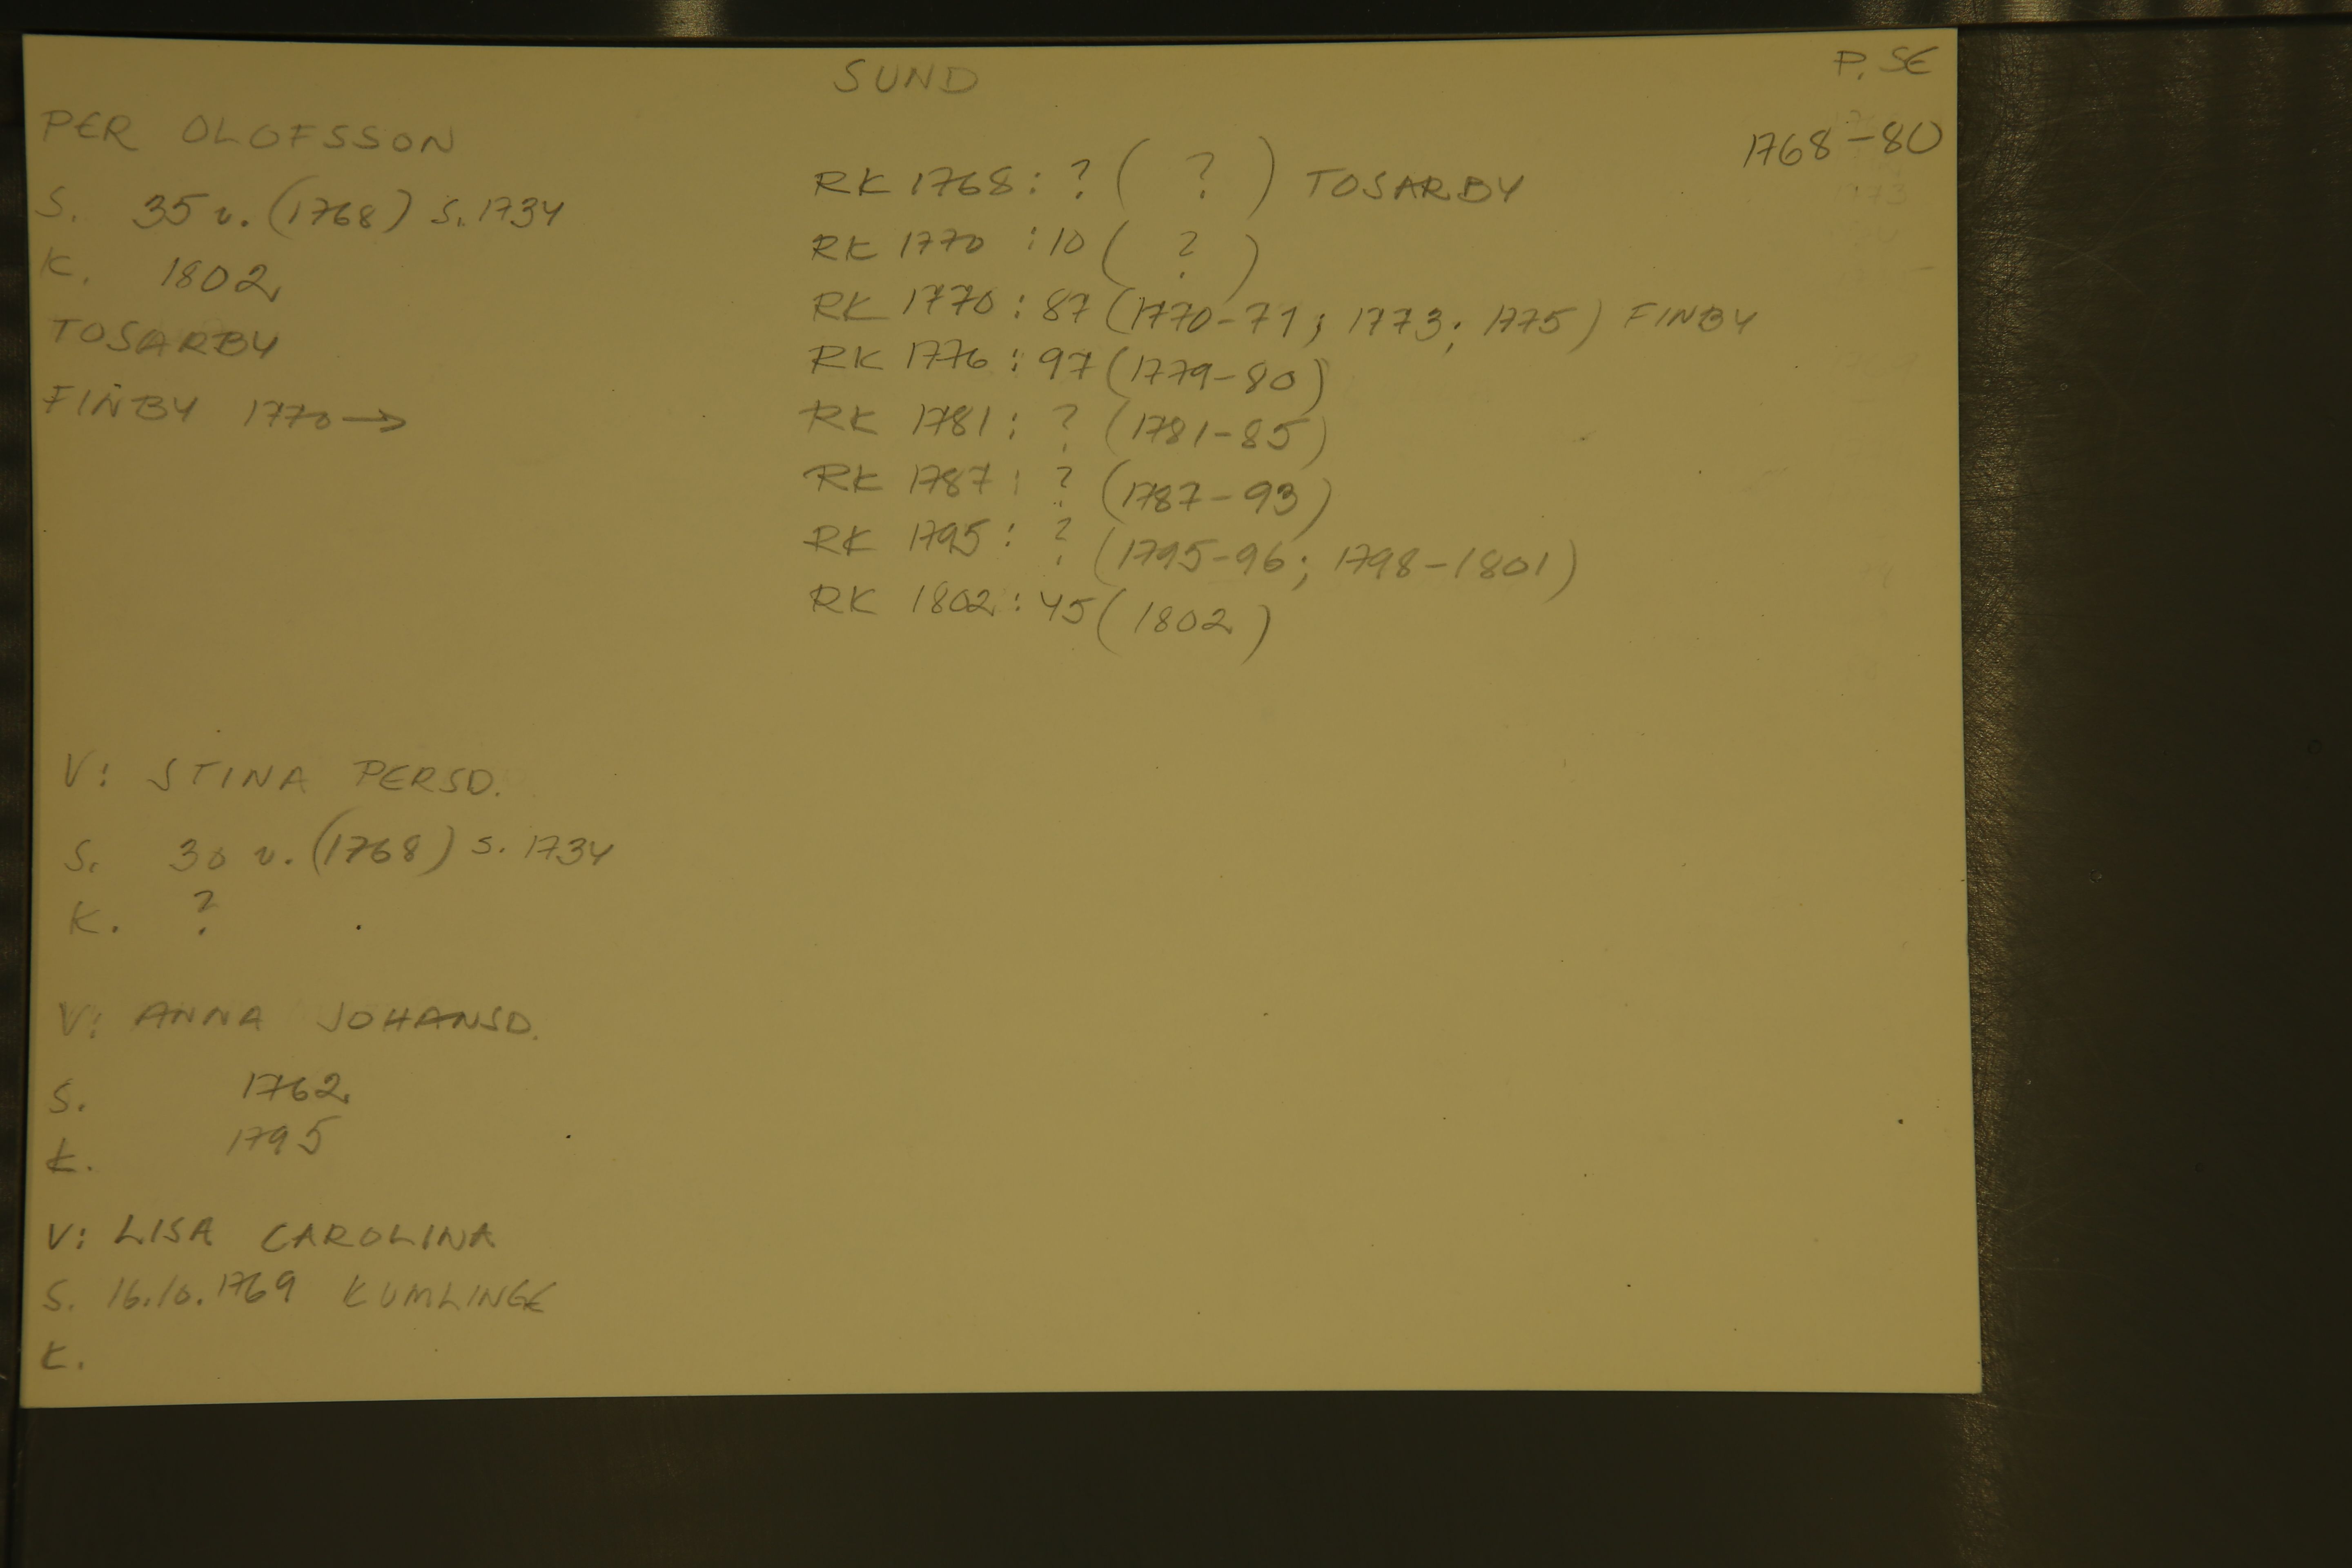 SUND
P. SE
1768-80
PER OLOFSSON
S. 35 v. (1768) S. 1734
K. 1802
TOSARBY
FINBY 1770 →
RK 1768: ? ( ? ) TOSARBY
RK 1770 : 10 ( ? )
RK 1770 : 87 (1770-71; 1773; 1775) FINBY
RK 1776 : 97 (1779-80)
RK 1781 : ? (1781-85)
RK 1787 : ? (1787-93)
RK 1795 : ? (1795-96; 1798-1801)
RK 1802 : 45 (1802)
V: STINA PERSD.
S. 30 v. (1768) S. 1734
K. ?
V: ANNA JOHANSD.
S. 1762
K. 1795
V: LISA CAROLINA
S. 16.10.1769 KUMLINGE
K.